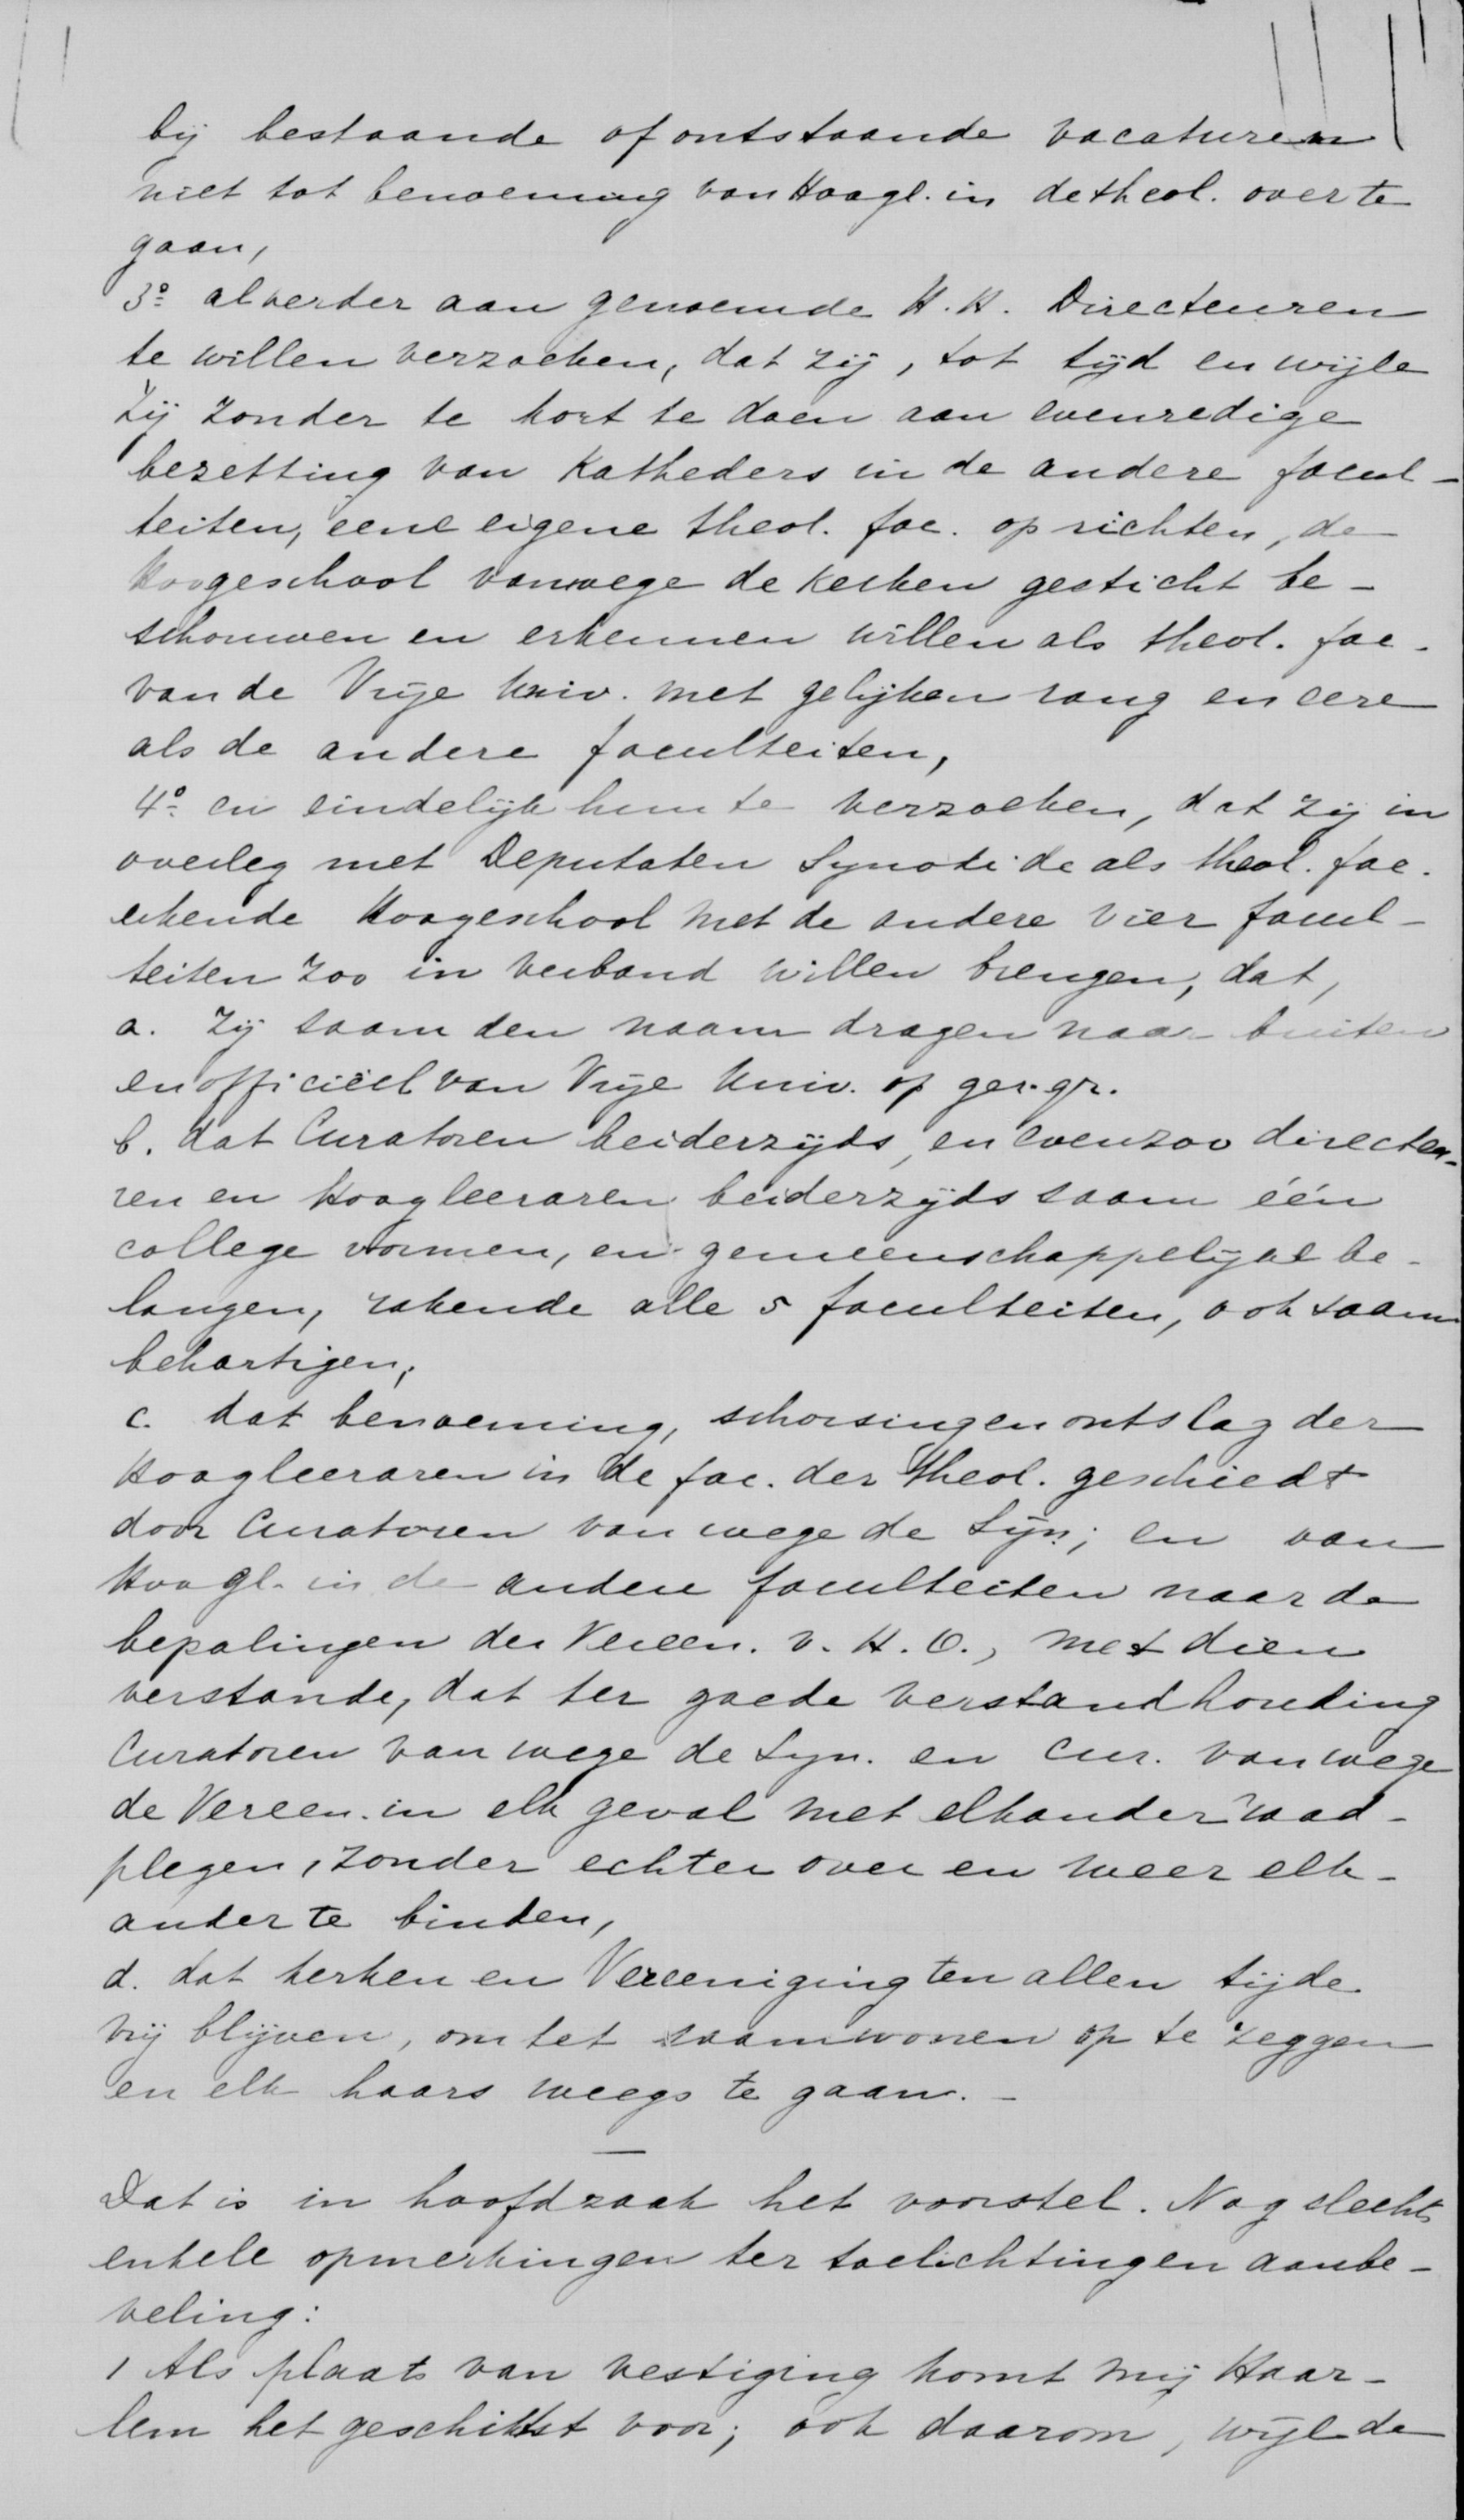 bij bestaande of ontstaande vacaturen
niet tot benoeming van Hoogl. in de theol. over te
gaan,
3º al verder aan genoemde H.H. Directeuren
te willen verzoeken, dat zij, tot tijd en wijle
zij zonder te kort te doen aan evenredige
bezetting van Katheders in de andere facul-
teiten, eene eigene theol. fac. oprichten, de
Hoogeschool vanwege de Kerken gesticht be-
schouwen en erkennen willen als theol. fac.
van de Vrije Univ. met gelijken rang en eere
als de andere faculteiten,
4º en eindelijk hun te verzoeken, dat zij in
overleg met Deputaten Synodi de als theol. fac.
erkende Hoogeschool met de andere vier facul-
teiten zoo in verband willen brengen, dat,
a. zij saam den naam dragen naar buiten
en officiëel van Vrije Univ. op ger. gr.
b. dat Curatoren beiderzijds, en evenzoo directeu-
ren en Hoogleeraren beiderzijds saam één
college vormen, en gemeenschappelijke be-
langen, rakende alle 5 faculteiten, ook saam
behartigen;
c. dat benoeming, schorsing en ontslag der
Hoogleeraren in de fac. der theol. geschiedt
door Curatoren van wege de Syn.; en van
Hoogl. in de andere faculteiten naar de
bepalingen der Vereen. v. H. O., met dien
verstande, dat ter goede verstandhouding
Curatoren van wege de Syn. en Cur. vanwege
de Vereen. in elk geval met elkander raad-
plegen, zonder echter over en weer elk-
ander te binden,
d. dat kerken en Vereeniging ten allen tijde
vrij blijven, om het saamwonen op te zeggen
en elk haars weegs te gaan. -
Dat is in hoofdzaak het voorstel. Nog slechts
enkele opmerkingen ter toelichting en aanbe-
veling:
1 Als plaats van vestiging komt mij Haar-
lem het geschiktst voor; ook daarom, wijl de